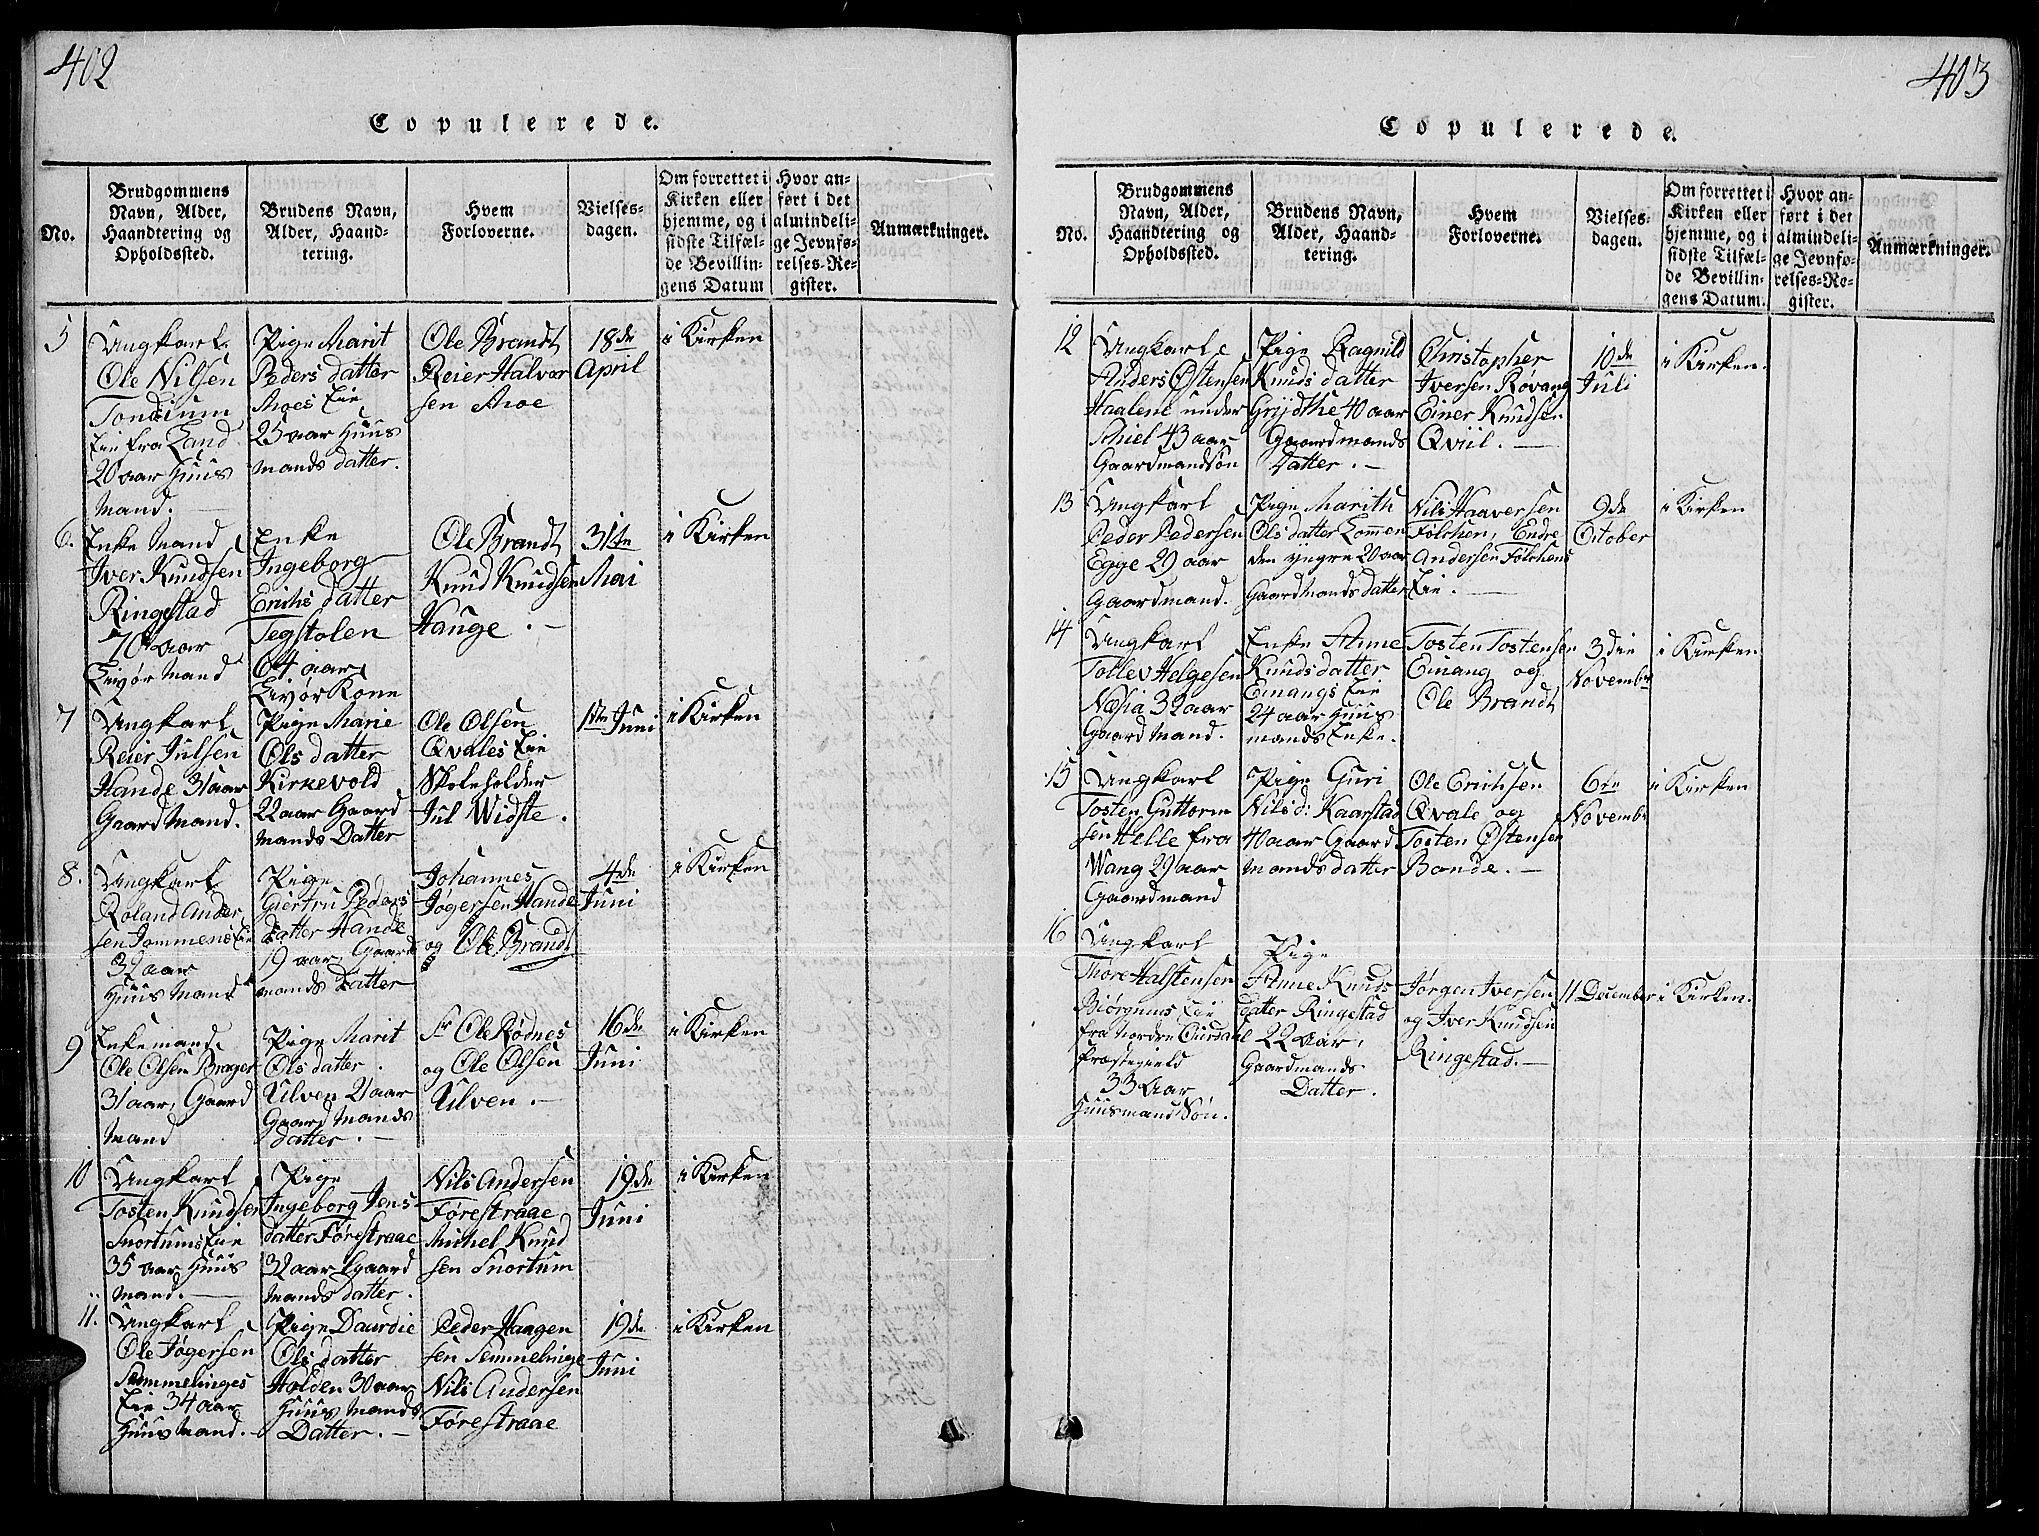 402
Copulerede.
No.
Brudgommens
Navn, Alder,
Haandtering og
Opholdssted.
Brudens Navn,
Alder, Haand-
tering.
Hvem
Forloverne.
Vielses-
dagen.
Om forrettet i
Kirken eller
hjemme, og i
sidste Tilfæl-
de Bevillin-
gens Datum
Hvor an-
ført i det
almindeli-
ge Jevnfø-
relses-Re-
gister.
Anmærkninger.
5
Ungkarl
Ole Nilsen
Tonsium
Eie fra Land
20 aar Huus
Mand.
Pige Marit
Peders datter
Moes Eie
25 aar Huus
mands datter.
Ole Brandt
Reier Halvor
sen Moe
18de
April
i Kirken
6.
Enke Mand
Iver Knudsen
Ringestad
70 aar
Livør Mand
Enke
Ingeborg
Erichs datter
Tegstolen
64 aar
Livør Kone
Ole Brandt
Knud Knudsen
Hange. —
31te
Mai
i Kirken
7
Ungkarl
Reier Julsen
Hande 31 aar
Gaard Mand.
Pige Marie
Ols datter
Kirkevold
22 aar Gaard
mands Datter
Ole Olsen
Qvales Eie
Skoleholder
Jul Widste.
1te Juni
i Kirken
8.
Ungkarl
Roland Ander
sen Jommens Eie
32 aar
Huus Mand
Pige
Giertru Peders
datter Hande
19 aar, Gaard
mands Datter
Johannes
Jogersen Hande
og Ole Brandt
4de
Juni
i Kirken
9
Enkemand
Ole Olsen Brager
31 aar, Gaard
Mand
Pige Marit
Ols datter.
Ulven 21 aar
Gaard Mands
datter. —
Sr Ole Rødnes
og Ole Olsen
Ulven. —
16de
Juni
i Kirken
10
Ungkarl
Tosten Knudsen
Snortums Eie
35 aar Huus
mand. —
Pige
Ingeborg Jens-
datter Førestraae
32 aar Gaard
mands datter.
Nils Andersen
Førestraae
Michel Knud
sen Snortum
19de
Juni
i Kirken
11.
Ungkarl
Ole Jøgersen
Semmelinges
Eie 34 aar
Huus Mand. —
Pige Daurdie
Ols datter
Holden 30 aar
Huus Mands
Datter. —
Peder Haagen
sen Semmelinge
Nils Andersen
Førestraae
19de
Juni
i Kirken
403
Copulerede.
No.
Brudgommens
Navn, Alder,
Haandtering og
Opholdssted.
Brudens Navn,
Alder, Haand-
tering.
Hvem
Forloverne.
Vielses-
dagen.
Om forrettet i
Kirken eller
hjemme, og i
sidste Tilfæl-
de Bevillin-
gens Datum.
Hvor an-
ført i det
almindeli-
ge Jevnfø-
relses-Re-
gister.
Anmærkninger.
12
Ungkarl
Anders Østensen
Haalene under
Schiel 43 aar
Gaardmandsøn
Pige Ragnild
Knuds datter
Grijdthe 40 aar
Gaardmands
Datter. —
Christopher
Iversen Røvang
Einer Knudsen
Qviil. —
10de
Juli
i Kirken.
13
Ungkarl
Peder Pedersen
Egge 29 aar
Gaardmand.
Pige Marith
Ols datter Lommen
den yngre 20 aar
Gaardmands datter
Nils Haaversen
Følchen, Endre
Andersen Følchens
Eie. —
9de
October
i Kirken
14
Ungkarl
Tollev Helgesen
Næsia 32 aar
Gaard Mand.
Enke Anne
Knuds datter
Emangs Eie
24 aar Huus
mands Enke.
Tosten Tostensen
Emang og
Ole Brandt
3die
Novembr
i Kirken
15
Ungkarl
Tosten Guttorm
sen Helle fra
Wang 29 aar
Gaardmand
Pige Guri
Nils d: Kaarstad
40 aar Gaard
mands datter
Ole Erichsen
Qvale og
Tosten Østensen
Bonde. —
6te
Novembr
i Kirken
16
Ungkarl
Thore Halstensen
Biørgnus Eie
fra Nordre Ourdahl
Præstegield
33 Aar
Huusmand Søn.
Pige
Anne Knuds
datter Ringestad
22 aar,
Gaardmands
Datter.
Jørgen Iversen
og Iver Knudsen
Ringestad. —
11 December
i Kirken.